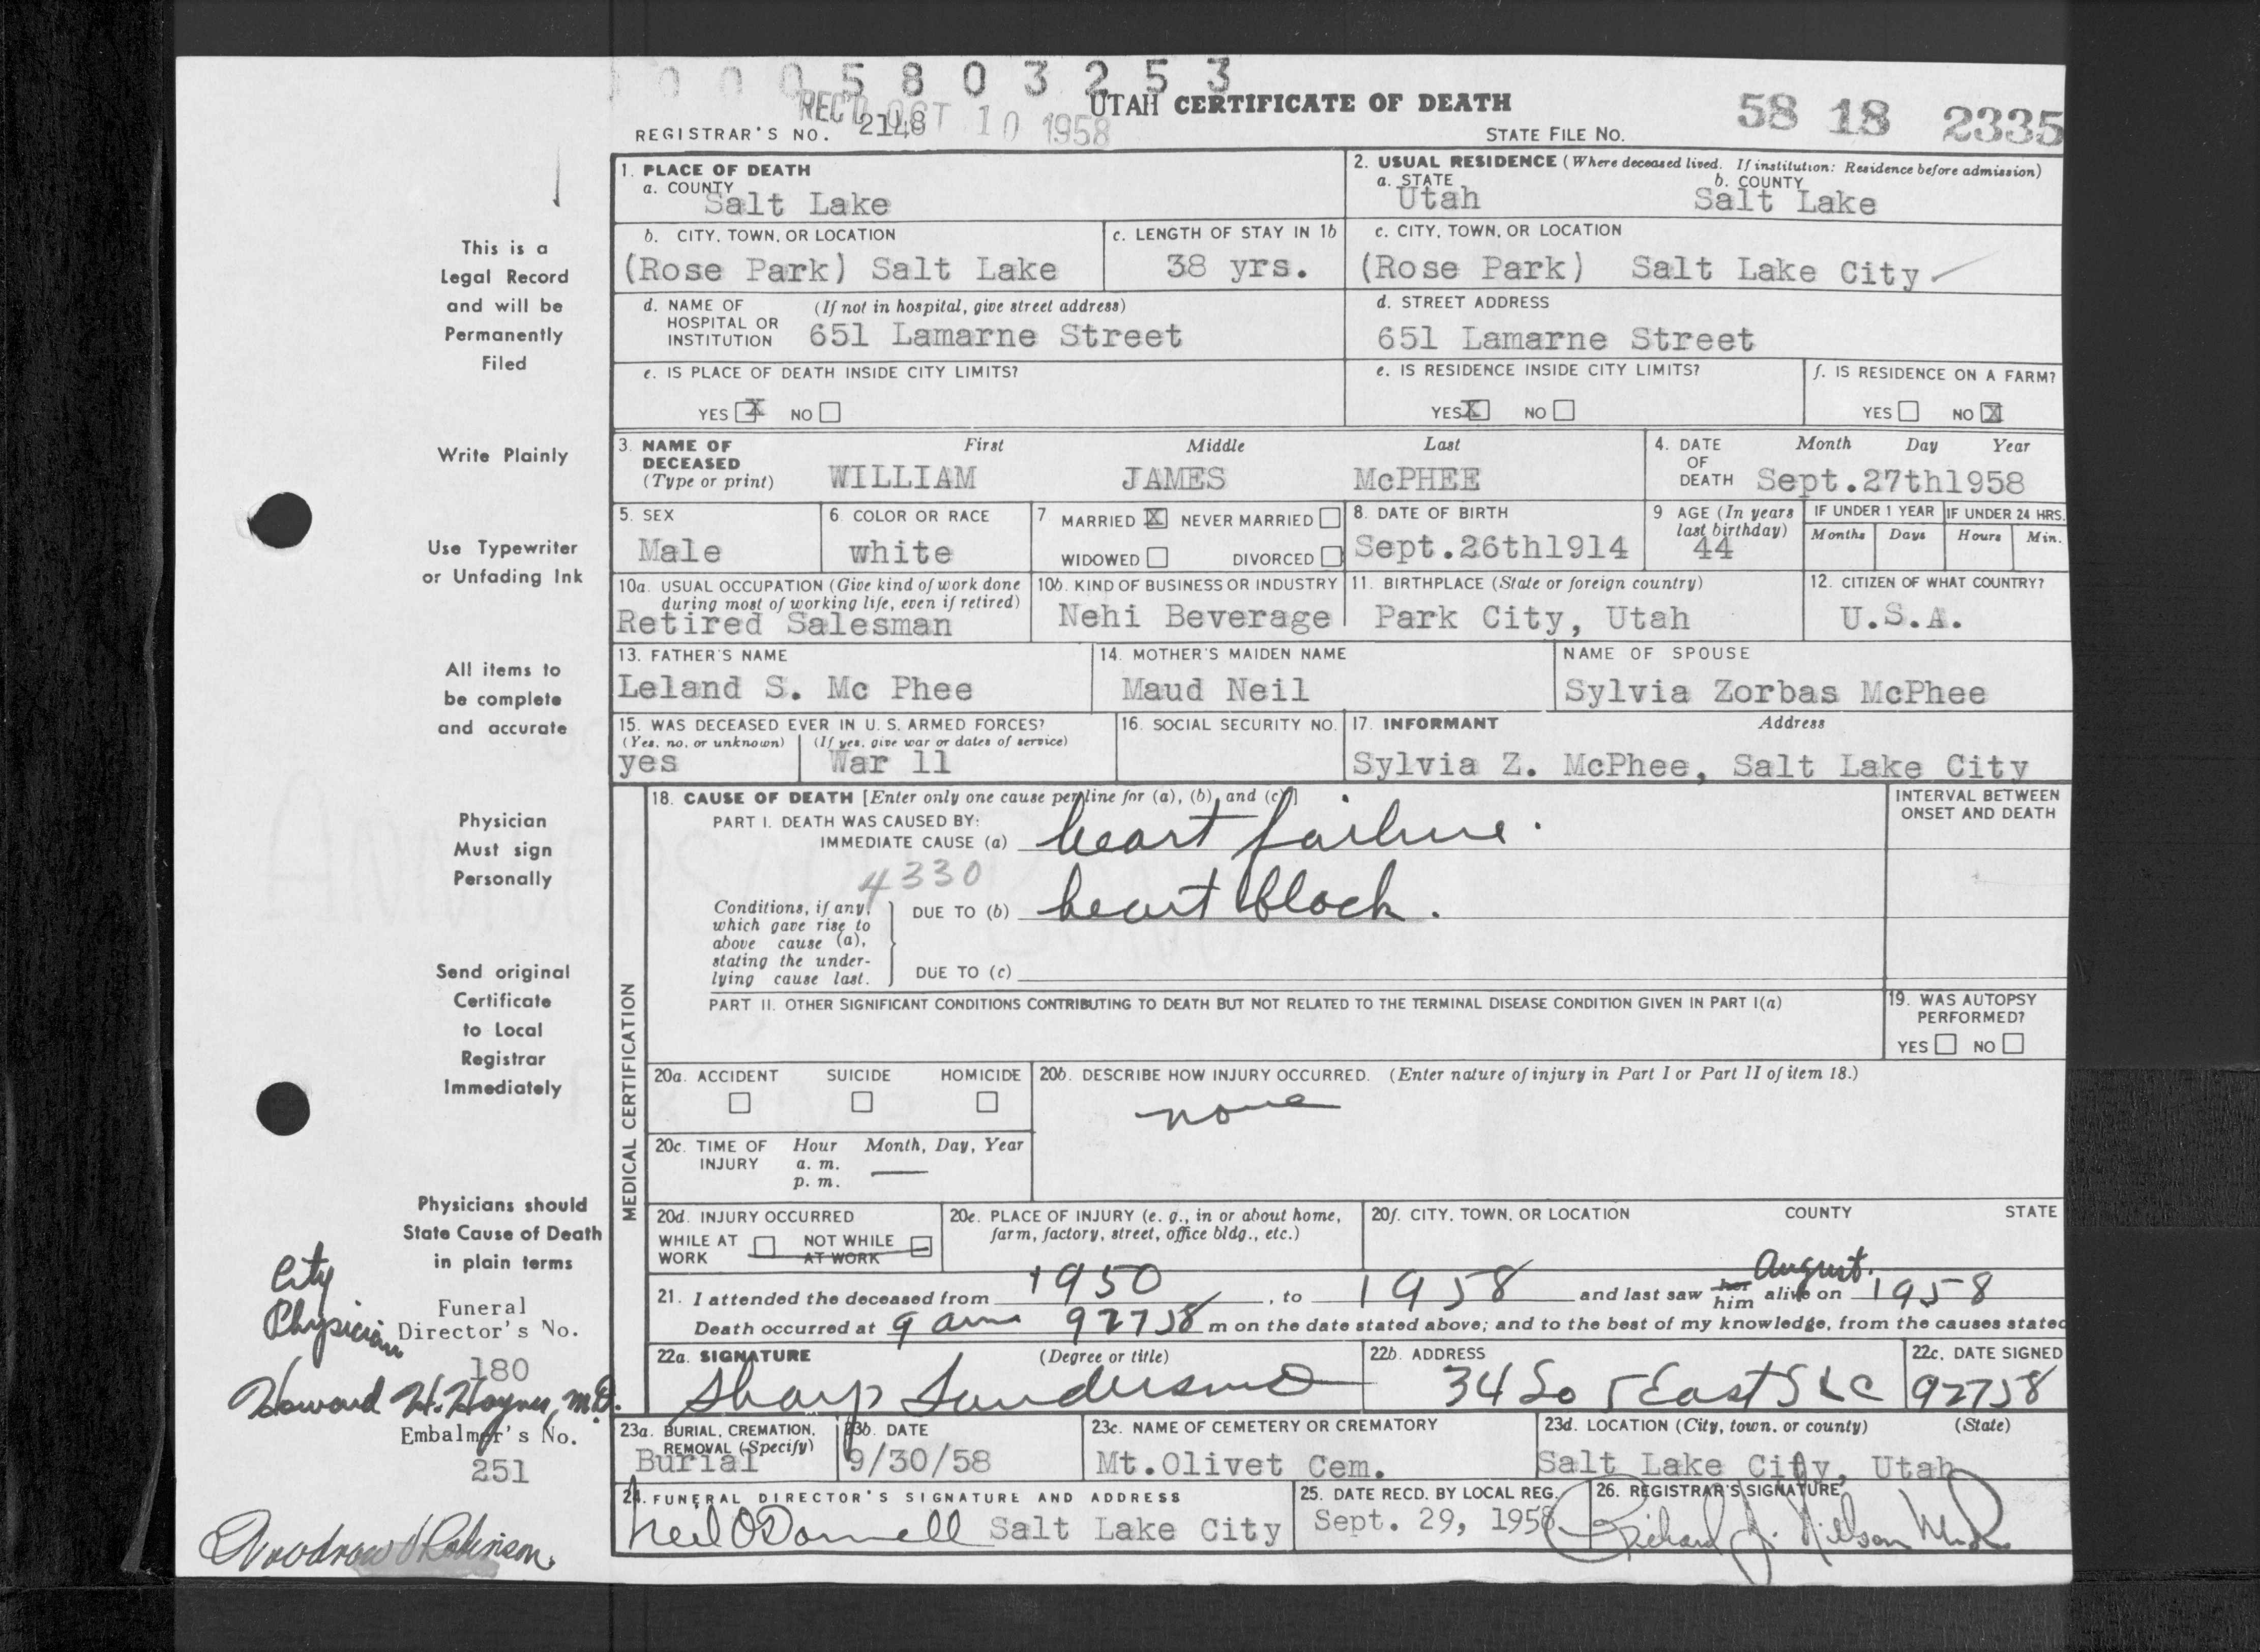 0 0 0 5 8 0 3 2 5 3
REC'D OCT 10 1958
UTAH CERTIFICATE OF DEATH
58 18 2335
REGISTRAR'S NO. 2148
STATE FILE NO.
1. PLACE OF DEATH
a. COUNTY
Salt Lake
2. USUAL RESIDENCE (Where deceased lived. If institution: Residence before admission)
a. STATE b. COUNTY
Utah Salt Lake
b. CITY, TOWN, OR LOCATION
(Rose Park) Salt Lake
c. LENGTH OF STAY IN 1b
38 yrs.
c. CITY, TOWN, OR LOCATION
(Rose Park) Salt Lake City
d. NAME OF HOSPITAL OR INSTITUTION (If not in hospital, give street address)
651 Lamarne Street
d. STREET ADDRESS
651 Lamarne Street
e. IS PLACE OF DEATH INSIDE CITY LIMITS?
YES X NO
e. IS RESIDENCE INSIDE CITY LIMITS?
YES X NO
f. IS RESIDENCE ON A FARM?
YES NO X
3. NAME OF DECEASED (Type or print)
First Middle Last
WILLIAM JAMES McPHEE
4. DATE OF DEATH Month Day Year
Sept.27th1958
5. SEX
Male
6. COLOR OR RACE
white
7 MARRIED X NEVER MARRIED
WIDOWED DIVORCED
8. DATE OF BIRTH
Sept.26th1914
9 AGE (In years last birthday)
44
IF UNDER 1 YEAR IF UNDER 24 HRS.
Months Days Hours Min.
10a. USUAL OCCUPATION (Give kind of work done during most of working life, even if retired)
Retired Salesman
10b. KIND OF BUSINESS OR INDUSTRY
Nehi Beverage
11. BIRTHPLACE (State or foreign country)
Park City, Utah
12. CITIZEN OF WHAT COUNTRY?
U.S.A.
13. FATHER'S NAME
Leland S. Mc Phee
14. MOTHER'S MAIDEN NAME
Maud Neil
NAME OF SPOUSE
Sylvia Zorbas McPhee
15. WAS DECEASED EVER IN U. S. ARMED FORCES?
(Yes, no, or unknown) (If yes, give war or dates of service)
yes War 11
16. SOCIAL SECURITY NO.
17. INFORMANT Address
Sylvia Z. McPhee, Salt Lake City
MEDICAL CERTIFICATION
18. CAUSE OF DEATH [Enter only one cause per line for (a), (b), and (c)]
INTERVAL BETWEEN ONSET AND DEATH
PART I. DEATH WAS CAUSED BY:
IMMEDIATE CAUSE (a) heart failure.
4330
Conditions, if any, which gave rise to above cause (a), stating the underlying cause last.
DUE TO (b) heart block.
DUE TO (c)
PART II. OTHER SIGNIFICANT CONDITIONS CONTRIBUTING TO DEATH BUT NOT RELATED TO THE TERMINAL DISEASE CONDITION GIVEN IN PART I(a)
19. WAS AUTOPSY PERFORMED?
YES NO
20a. ACCIDENT SUICIDE HOMICIDE
20b. DESCRIBE HOW INJURY OCCURRED. (Enter nature of injury in Part I or Part II of item 18.)
none
20c. TIME OF INJURY Hour Month, Day, Year
a. m.
p. m.
20d. INJURY OCCURRED
WHILE AT WORK NOT WHILE AT WORK
20e. PLACE OF INJURY (e. g., in or about home, farm, factory, street, office bldg., etc.)
20f. CITY, TOWN, OR LOCATION COUNTY STATE
21. I attended the deceased from 1950, to 1958 and last saw her him alive on August. 1958
Death occurred at 9 am 92758 m on the date stated above; and to the best of my knowledge, from the causes stated
22a. SIGNATURE (Degree or title)
Sharp Sanders MD
22b. ADDRESS
34 So 5 East SLC
22c. DATE SIGNED
92758
23a. BURIAL, CREMATION, REMOVAL (Specify)
Burial
23b. DATE
9/30/58
23c. NAME OF CEMETERY OR CREMATORY
Mt.Olivet Cem.
23d. LOCATION (City, town, or county) (State)
Salt Lake City, Utah
24. FUNERAL DIRECTOR'S SIGNATURE AND ADDRESS
Neil O'Donnell Salt Lake City
25. DATE RECD. BY LOCAL REG.
Sept. 29, 1958
26. REGISTRAR'S SIGNATURE
Richard J. Nilson M.D.
This is a
Legal Record
and will be
Permanently
Filed
Write Plainly
Use Typewriter
or Unfading Ink
All items to
be complete
and accurate
Physician
Must sign
Personally
Send original
Certificate
to Local
Registrar
Immediately
Physicians should
State Cause of Death
in plain terms
City
Physician
Funeral
Director's No.
180
Howard H. Haynes, M.D.
Embalmer's No.
251
Woodrow J Robinson.